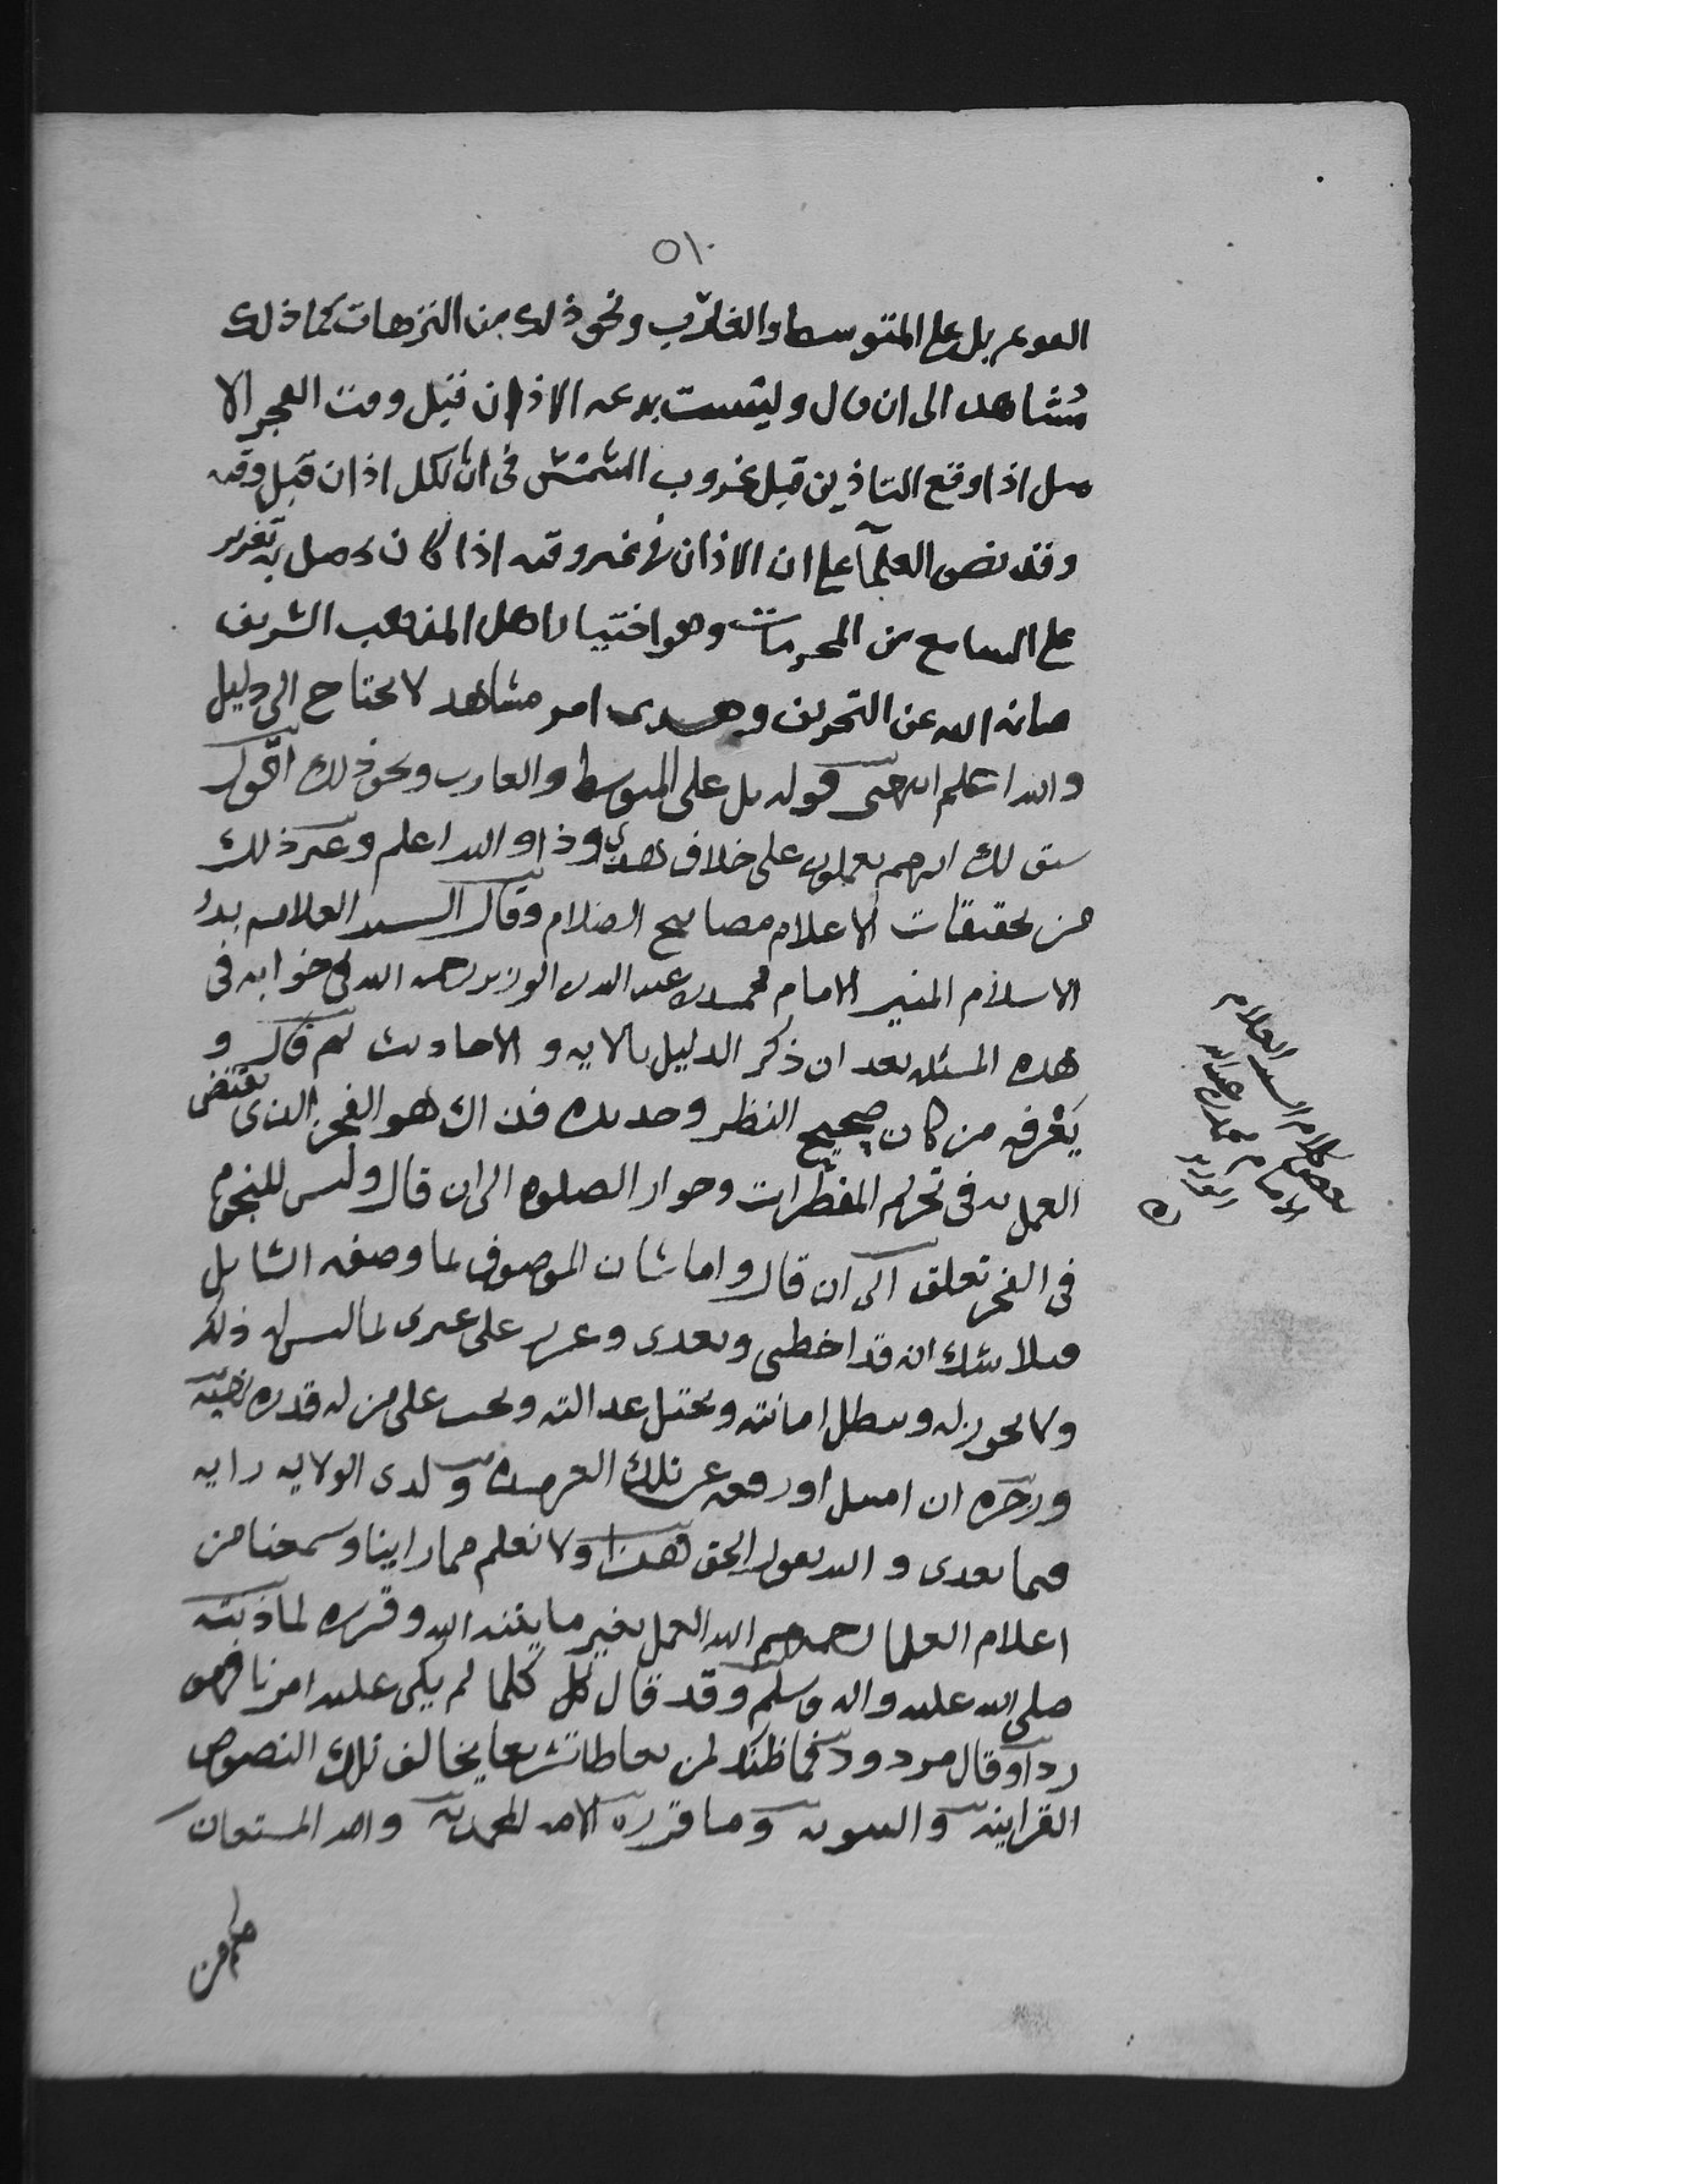 ٥١٠
بل على المتوسط والغارب ونحو ذلك من النزهات كما ذلك
مشاهد الى ان قال وليست بدعه الاذان قبل وقت الفجر الا
مثل اذا وقع التاذين قبل غروب الشمس في ان الكل اذان قبل وقته
وقد نص العلمآ على ان الاذان في غير وقته اذا كان حصل به تغرير
على السامع من المحرمات وهو اختيار اهل المذهب الشريف
صانه الله عن التحريف وهدى امر مشاهد لا يحتاج الى دليل
والله اعلم انتهى قوله بل على المتوسط والغارب ونحو ذلك اقول
سبق لك انهم يعملون على خلاف هدى وذا والله اعلم وغير ذلك
من تحقيقات الاعلام مصابيح الضلام وقال السيد العلامه بدر
الاسلام المنير الامام محمد بن عبد الله الوزير رحمه الله في جوابه في
هذه المسئله بعد ان ذكر الدليل بالايه و الاحاديث ثم قال و
يعرفه من كان صحيح النظر وحديده فذاك هو الفجر الذي يقتضى
العمل به في تحريم المفطرات وجواز الصلوه الى ان قال وليس للنجوم
في الفجر تعلق الى ان قال واما شان الموصوف بما وصفه السايل
فلا شك انه قد اخطى وتعدى وغرر على غيرى بما ليس له ذلك
ولا يجوز له وتبطل امانته ويختل عدالته ويجب على من له قدره نهيه
وزجره ان امتثل او رفعه عن تلك ولدى الولايه رايه
فيما تعدى و الله يقول الحق هذا ولا نعلم مما راينا وسمعنا من
اعلام العلما رحمهم الله العمل بغير ما بينه الله وقرره
صلى الله عليه واله وسلم وقد قال كل كلما لم يكن عليه امرنا فهو
رد او قال مردود فما ظنك لمن يخالف تلك النصوص
القرانيه و النبويه وما قررة الامه المحمديه والله المستعان
بعض كلام السيد العلامه
الامام محمد بن عبدالله
الوزير